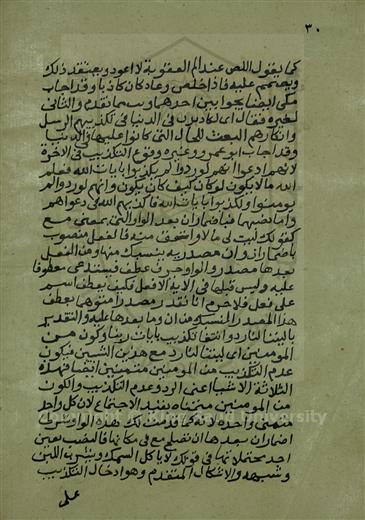 ٣٠
كما يقول اللص عند الم العقوبة لا اعود ويعتقد ذلك
ويصمم عليه فاذا خلص وعاد كان كاذبا وقد اجاب
مكي ايضا بجوابين احدهما قريب مما تقدم والثاني
لغيره فقال اي لكاذبون في الدنيا في تكذيبهم الرسل
وانكارهم البعث للحال التي كانوا عليها في الدنيا
وقد اجاز ابو عمرو وغيره وقوع التكذيب في الاخرة
لانهم ادعوا انهم لو ردوا لم يكذبوا بايات الله فعلم
الله ما لا يكون لو كان كيف كان يكون وانهم لو ردوا لم
يومنوا ولكذبوا بايات الله فاكذبهم الله في دعواهم
واما نصبهما فباضمار ان بعد الواو التي بمعنى مع
كقولك ليت لي مالا وانفق منه فالفعل منصوب
باضمار ان وان مصدرية ينسبك منها ومن الفعل
بعدها مصدر والواو حرف عطف فيستدعي معطوفا
عليه وليس قبلها في الاية الا فعل فكيف يعطف اسم
على فعل فلا جرم انا نقدر مصدرا متوهما يعطف
هذا المصدر المنسبك من ان وما بعدها عليه والتقدير
يا ليتنا لنا رد وانتفا تكذيب بايات ربنا وكون من
المومنين اي ليتنا لنا رد مع هذين الشيين فيكون
عدم التكذيب من المومنين متمنيين ايضا فهذه
الثلاثة الاشيا اعني الرد وعدم التكذيب والكون
من المومنين متمناه بقيد الاجتماع لا ان كل واحد
متمني وحده لانه كما قدمت لك هذه الواو شرط
اضمار ان بعدها ان تصلح مع في مكانها فالنصب يعين
احد محتملاتها في قولك لا تاكل السمك وتشرب اللبن
وشبهه والاشكال المتقدم وهو ادخال التكذيب
على